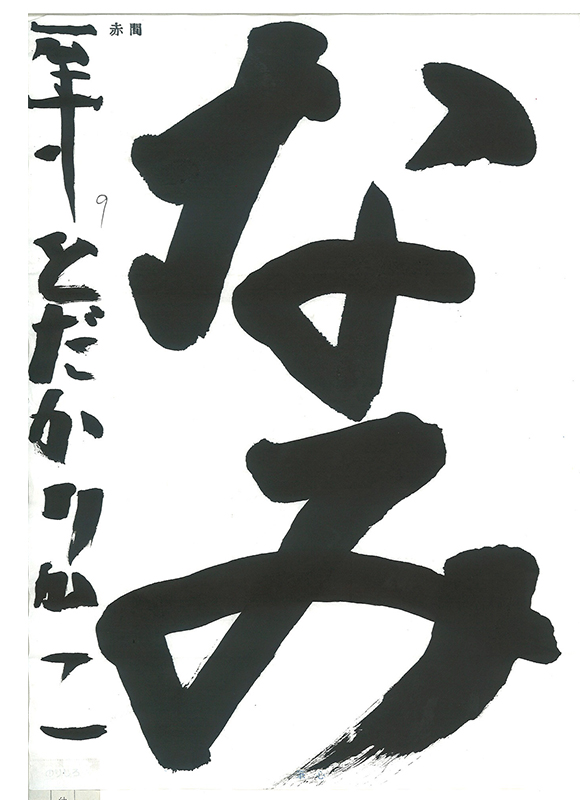 なみ
赤間
一年
9
とだかりかこ